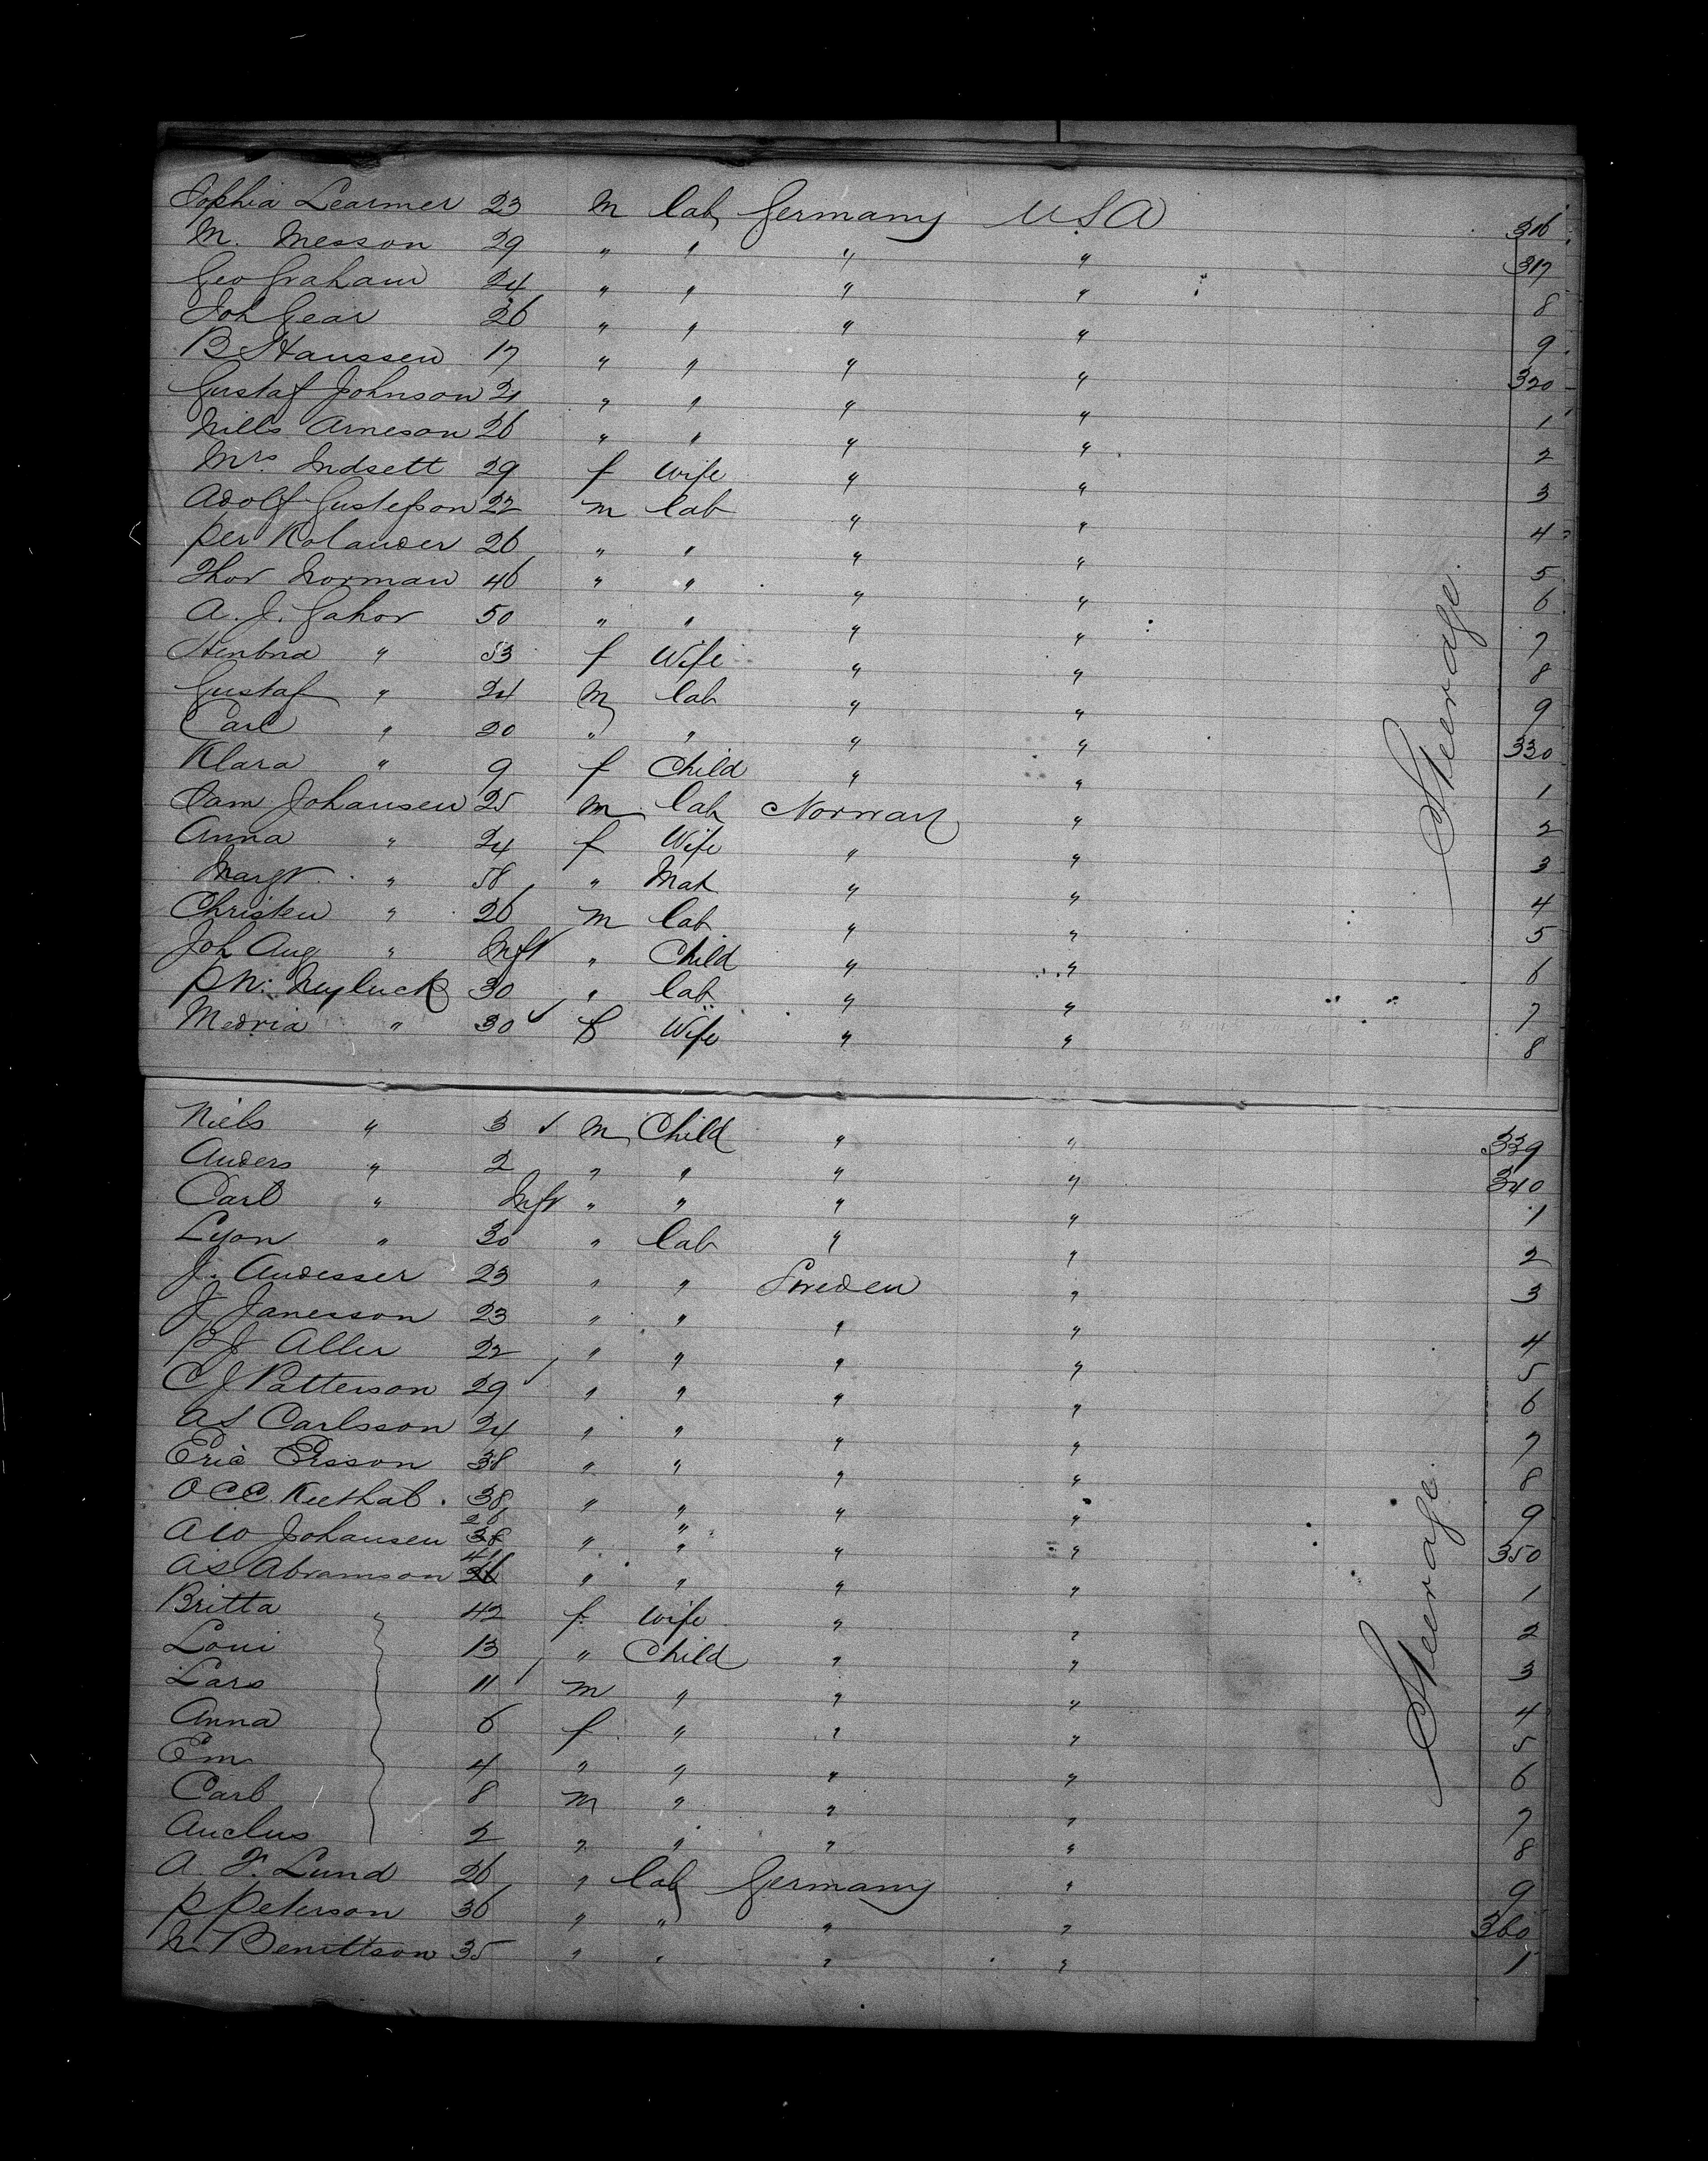 Sophia Learmer 23 m lab Germany USA 316
M. Messon 29 " " " " 317
Geo Graham 24 " " " " 8
Joh Gear 26 " " " " 9
B Hanssen 17 " " " " 320
Gustaf Johnson 21 " " " " 1
Nills Arneson 26 " " " " 2
Mrs Indsett 29 f Wife " " 3
Adolf Gustefson 22 m lab " " 4
Per Kolander 26 " " " " 5
Thor Norman 46 " " " " 6
A. J. Gahor 50 " " " " 7
" 53 f Wife " " 8
Gustaf " 24 m lab " " 9
Carl " 20 " " " " 330
Klara " 9 f Child " " 1
Sam Johansen 25 m lab Norway " 2
Anna " 24 f Wife " " 3
Margt " 58 " Mat " " 4
Christen " 26 m lab " " 5
Joh Aug " Inft " Child " " 6
P N. Neyluck 30 " lab " " 7
Medria " 30 f Wife " " 8
Steerage.
Niels " 3 m Child " " 339
Anders " 2 " " " " 340
Carl " Inft " " " " 1
Lyon " 30 " lab " " 2
J. Andesser 23 " " Sweden " 3
J Janesson 23 " " " " 4
P J Aller 22 " " " " 5
C J Patterson 29 " " " " 6
A S Carlsson 24 " " " " 7
Eric Ersson 38 " " " " 8
O C C. Keethal. 38 " " " " 9
A W Johansen 38 28 " " " " 350
A S Abramson 41 " " " " 1
Britta " 42 f Wife " " 2
Loui 13 " Child " " 3
Lars 11 m " " " 4
Anna 6 f " " " 5
Em 4 " " " " 6
Carl 8 m " " " 7
Anclus 2 " " " " 8
A. F. Lund 26 " lab Germany " 9
P Peterson 36 " " " " 360
N Benittson 35 " " " " 1
Steerage.